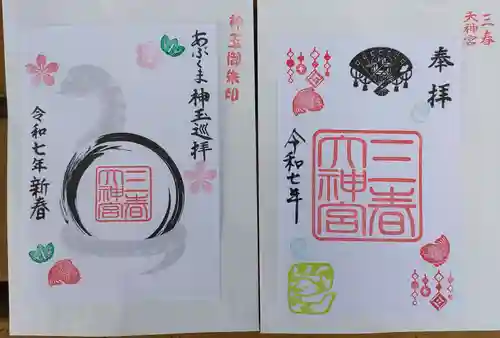 神玉御朱印
あぶくま神玉巡拝
三春
大神宮
令和七年新春
三春
大神宮
奉拝
三春
大神宮
令和七年